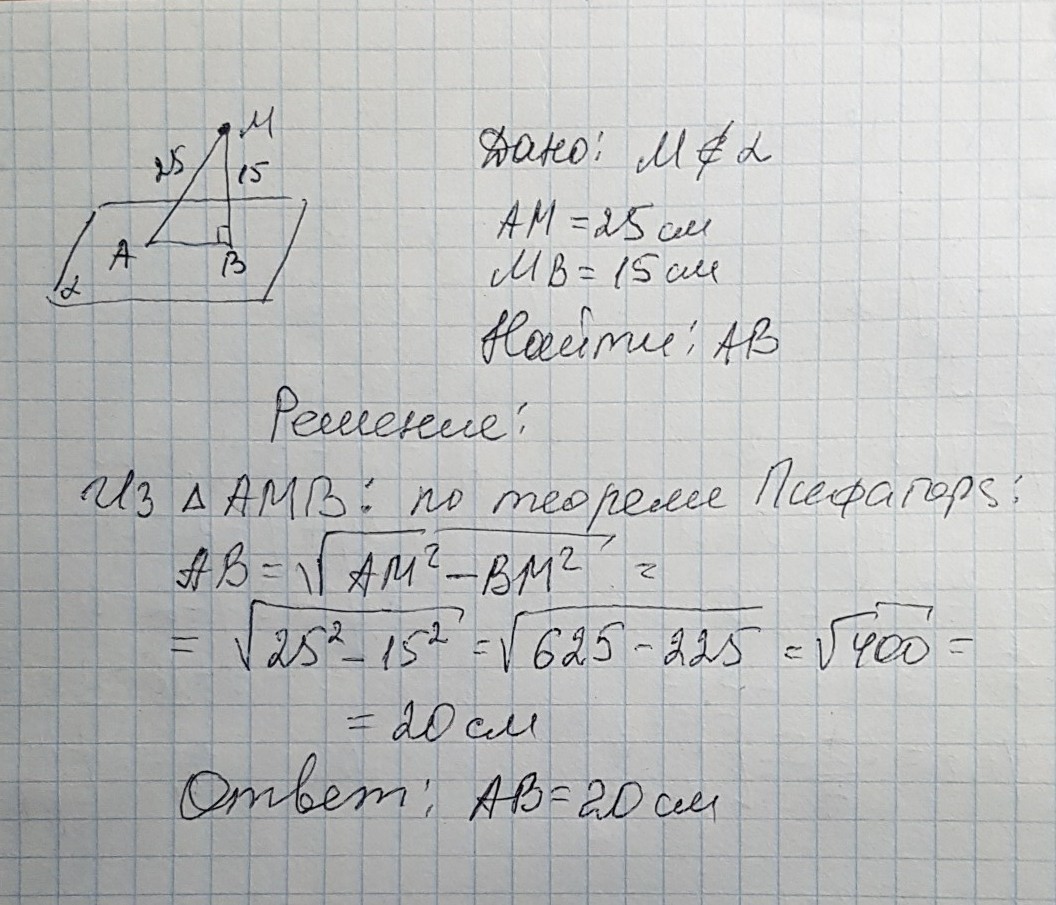 M
25
15
A
B
α
Дано: M ∉ α
AM = 25 см
MB = 15 см
Найти: AB
Решение:
Из △ AMB: по теореме Пифагора:
AB = √(AM² - BM²) =
= √(25² - 15²) = √(625 - 225) = √400 =
= 20 см
Ответ: AB = 20 см